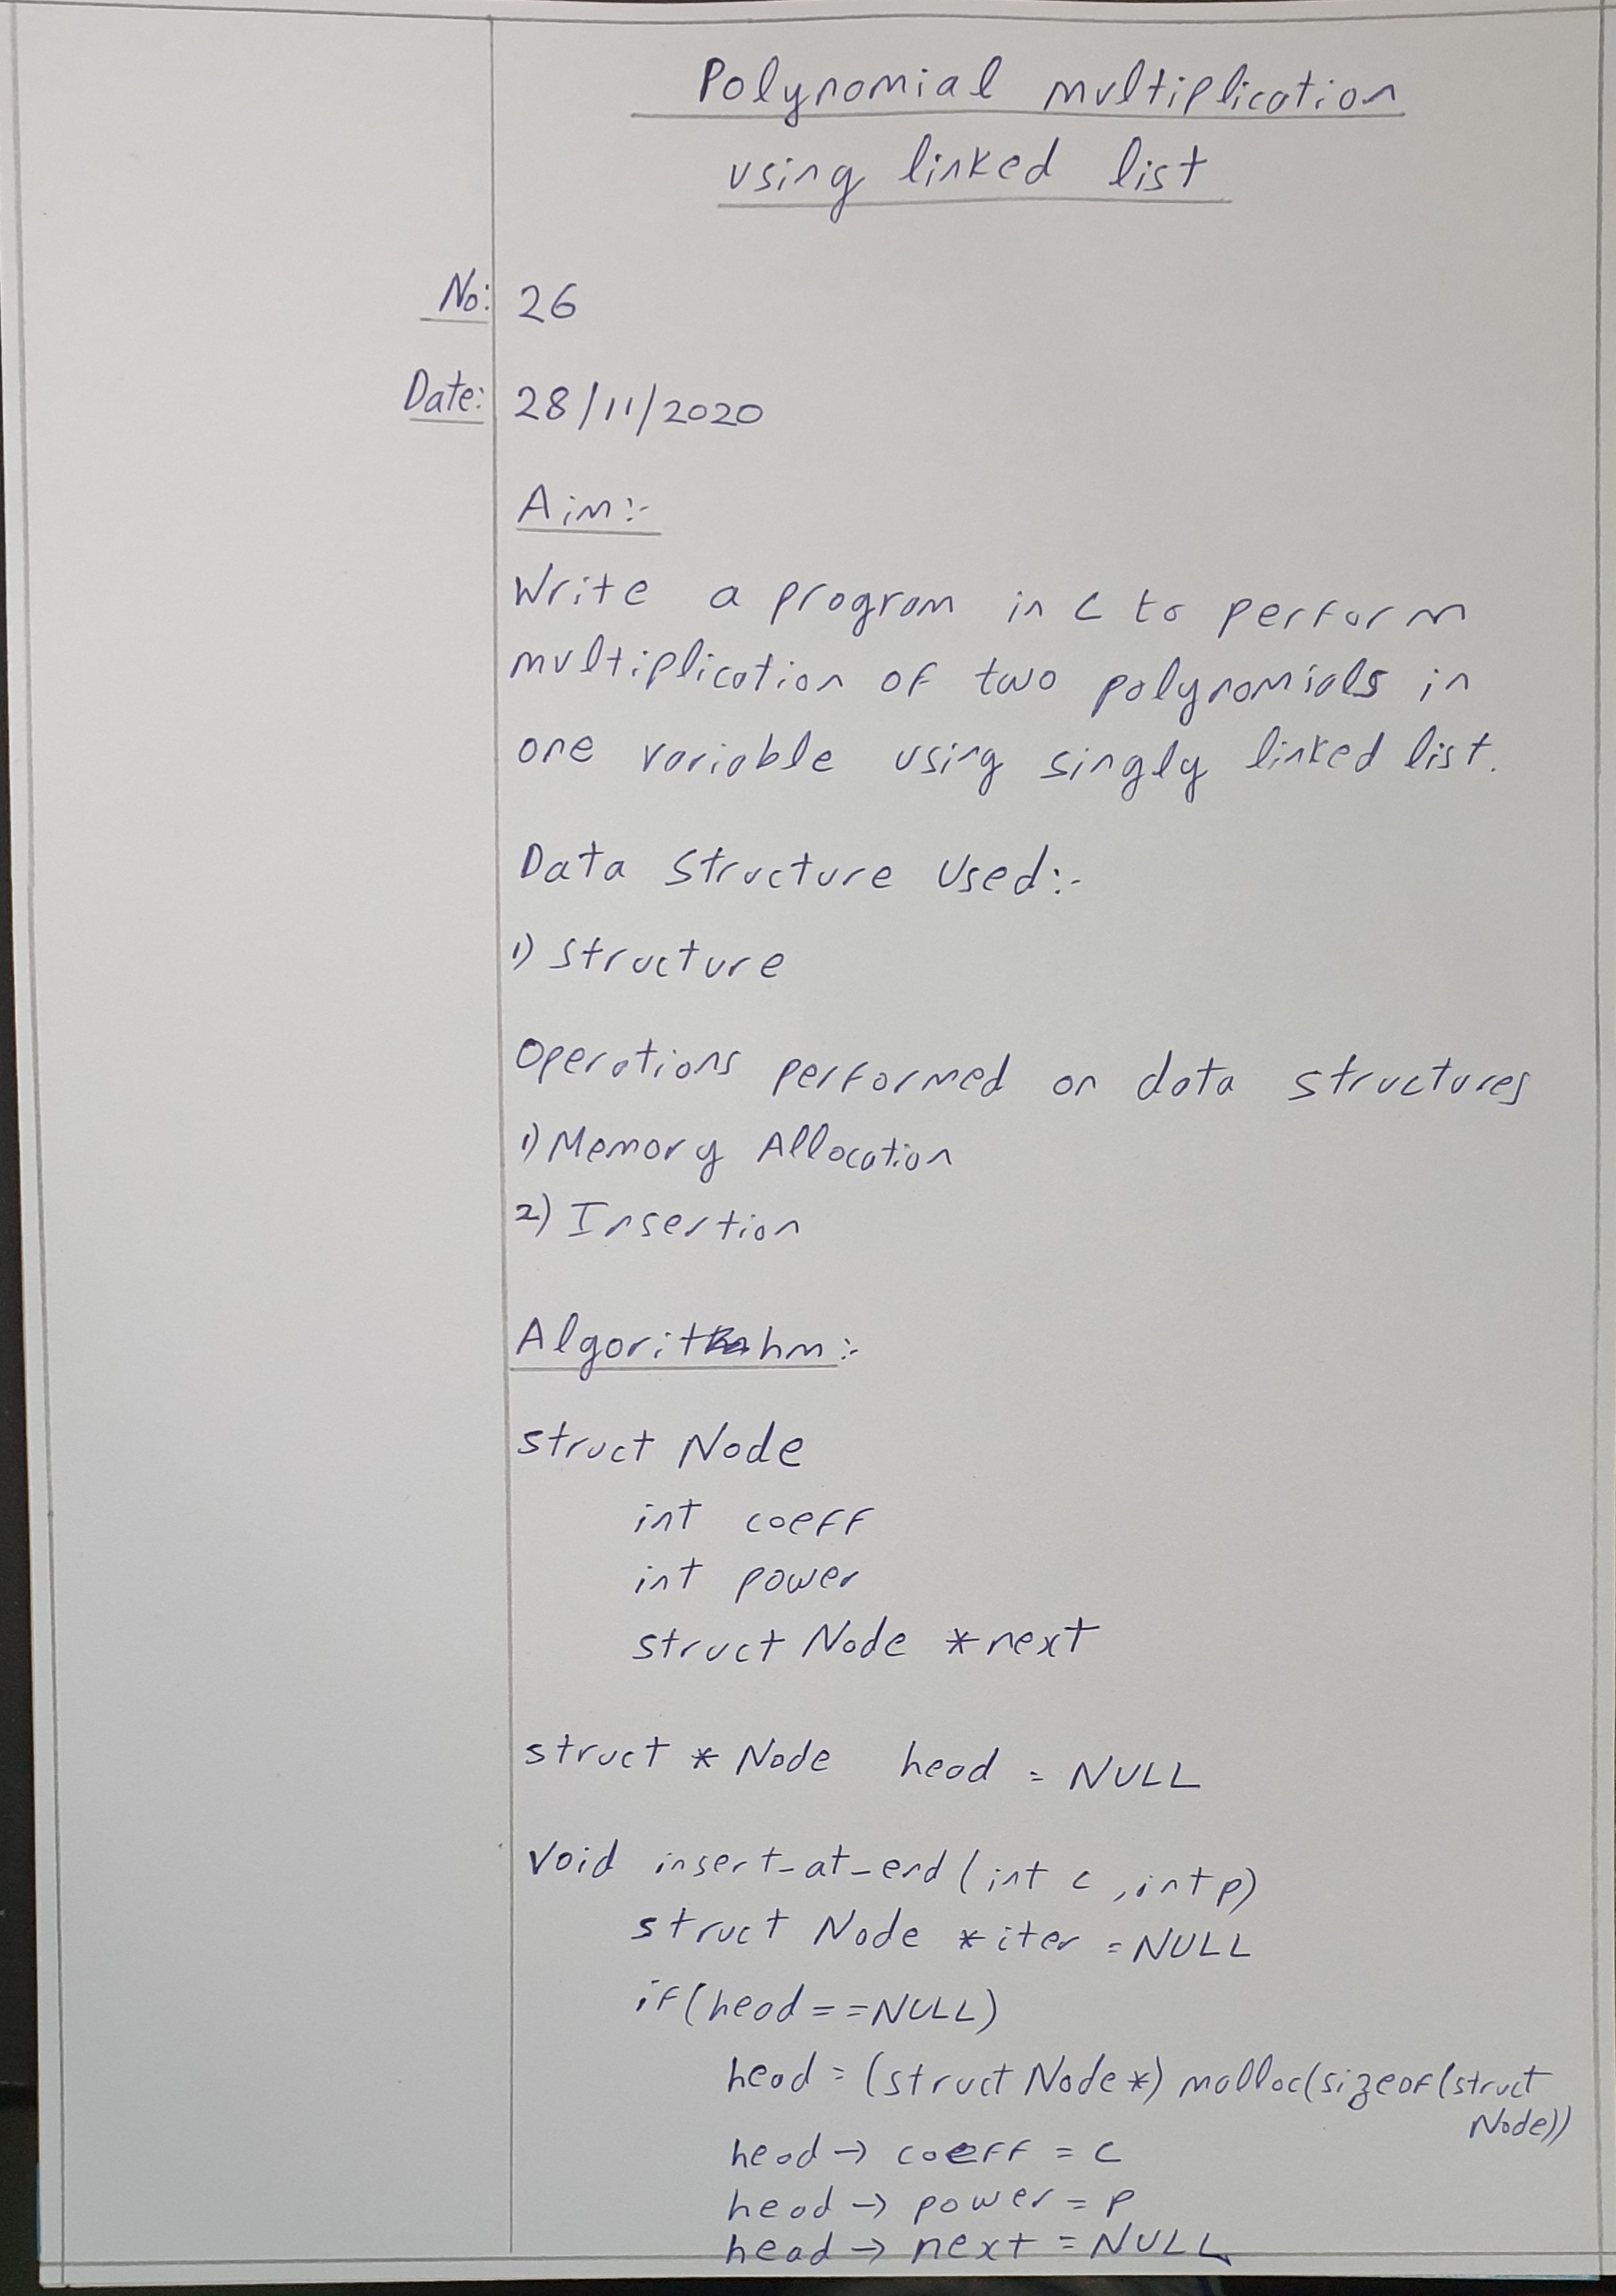 Polynomial multiplication
using linked list
No: 26
Date: 28/11/2020
Aim:-
Write a program in C to perform
multiplication of two polynomials in
one variable using singly linked list.
Data Structure Used:-
1) Structure
Operations performed on data structures
1) Memory Allocation
2) Insertion
Algorithm:-
struct Node
int coeff
int power
struct Node *next
struct * Node head = NULL
void insert-at-end(int c, int p)
struct Node *iter = NULL
if(head==NULL)
head = (struct Node*) malloc(sizeof(struct
Node))
head → coeff = c
head → power = p
head → next = NULL